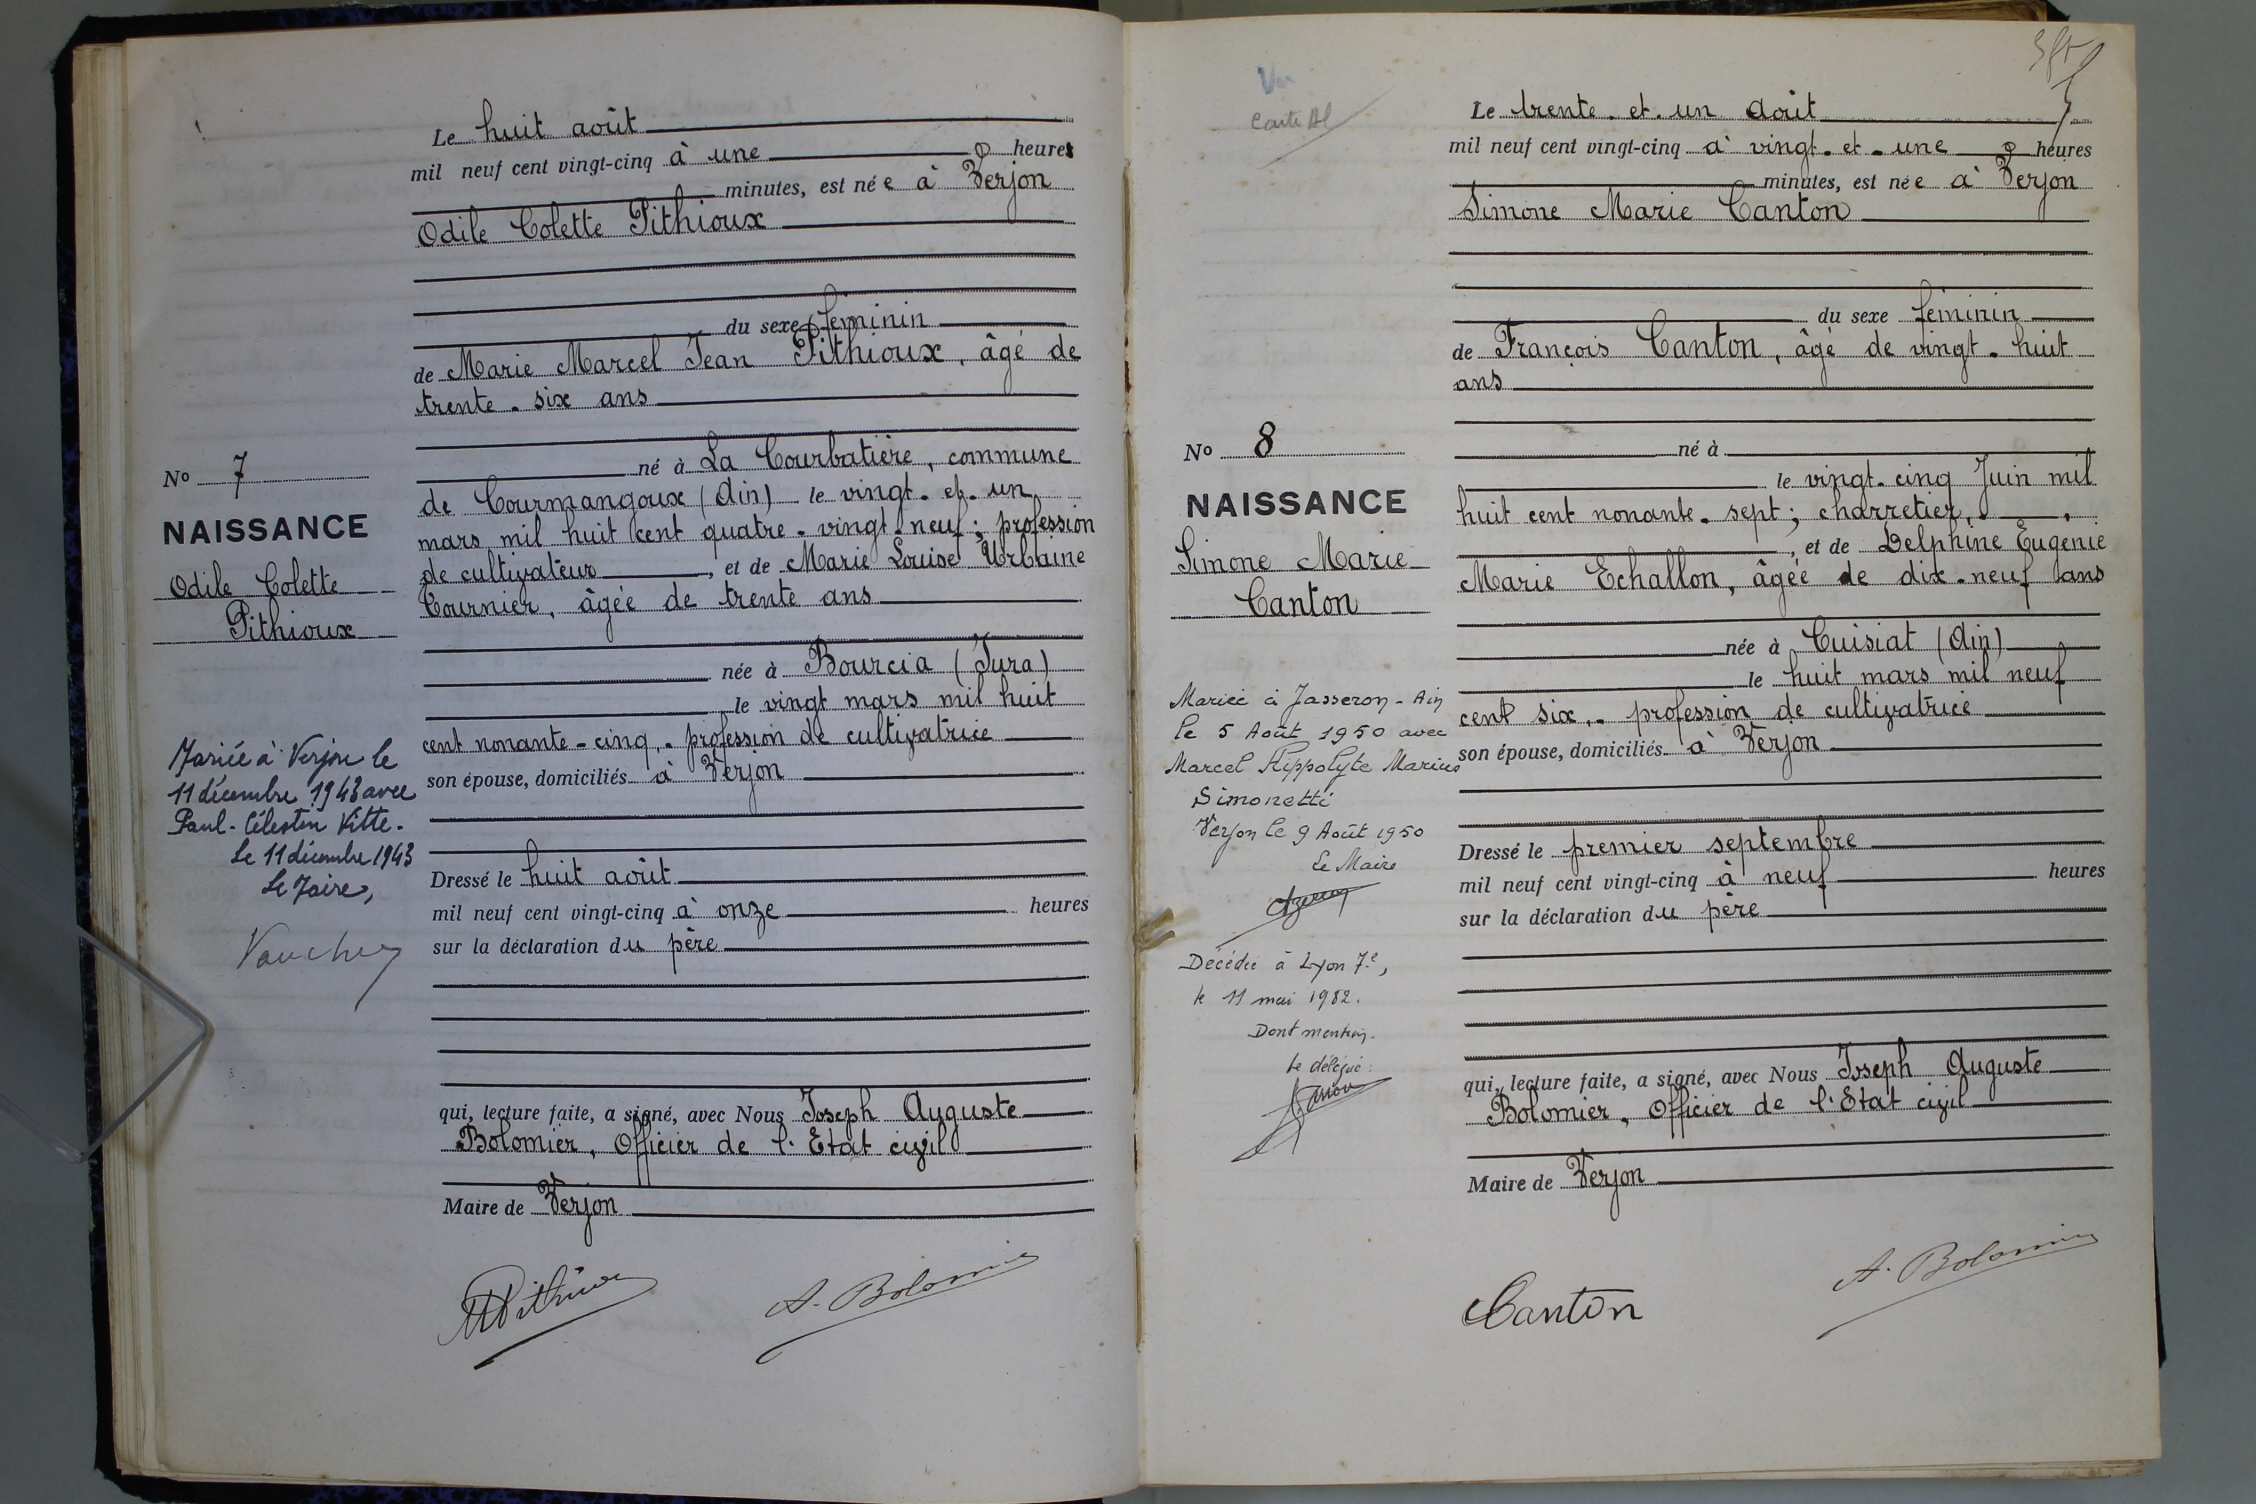 Le huit août
mil neuf cent vingt-cinq à une heures
minutes, est née à Verjon
Odile Colette Pithioux
du sexe féminin
de Marie Marcel Jean Pithioux, âgé de
trente-six ans
né à La Courbatière, commune
de Courmangoux (Ain) le vingt-et-un
mars mil huit cent quatre-vingt-neuf; profession
de cultivateur, et de Marie Louise Urbaine
Cournier, âgée de trente ans
née à Bourcia (Jura)
le vingt mars mil huit
cent nonante-cinq,. profession de cultivatrice
son épouse, domiciliés à Verjon
Dressé le huit août
mil neuf cent vingt-cinq à onze heures
sur la déclaration du père
qui, lecture faite, a signé, avec Nous Joseph Auguste
Bolomier, Officier de l'Etat civil
Maire de Verjon
MPithioux
A. Bolomier
No 7
NAISSANCE
Odile Colette
Pithioux
Mariée à Verjon le
11 décembre 1943 avec
Paul-Célestin Vitte.
Le 11 décembre 1943
Le Maire,
Vauchey
Vu
Carte Al
Le trente-et-un août
mil neuf cent vingt-cinq à vingt-et-une heures
minutes, est née à Verjon
Simone Marie Canton
du sexe féminin
de François Canton, âgé de vingt-huit
ans
né à
le vingt-cinq Juin mil
huit cent nonante-sept; charretier,
, et de Delphine Eugénie
Marie Echallon, âgée de dix-neuf ans
née à Cuisiat (Ain)
le huit mars mil neuf
cent six,. profession de cultivatrice
son épouse, domiciliés à Verjon
Dressé le premier septembre
mil neuf cent vingt-cinq à neuf heures
sur la déclaration du père
qui, lecture faite, a signé, avec Nous Joseph Auguste
Bolomier, Officier de l'Etat civil
Maire de Verjon
Canton
A. Bolomier
No 8
NAISSANCE
Simone Marie
Canton
Mariée à Jasseron-Ain
le 5 Août 1950 avec
Marcel Hippolyte Marius
Simonetti
Verjon le 9 Août 1950
Le Maire
Décédée à Lyon 7e,
le 11 mai 1982.
Dont mention.
Le délégué: